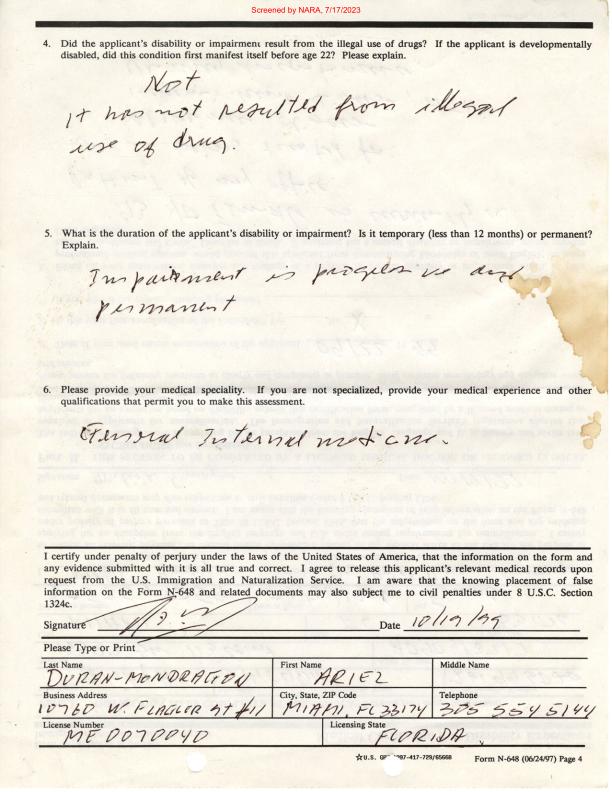 Screened by NARA, 7/17/2023
4. Did the applicant's disability or impairment result from the illegal use of drugs? If the applicant is developmentally
disabled, did this condition first manifest itself before age 22? Please explain.
Not
it has not resulted from illegal
use of drug.
5. What is the duration of the applicant's disability or impairment? Is it temporary (less than 12 months) or permanent?
Explain.
Impairment is progressive and
permanent
6. Please provide your medical speciality. If you are not specialized, provide your medical experience and other
qualifications that permit you to make this assessment.
General Internal medicine.
I certify under penalty of perjury under the laws of the United States of America, that the information on the form and
any evidence submitted with it is all true and correct. I agree to release this applicant's relevant medical records upon
request from the U.S. Immigration and Naturalization Service. I am aware that the knowing placement of false
information on the Form N-648 and related documents may also subject me to civil penalties under 8 U.S.C. Section
1324c.
Signature Date 10/19/99
Please Type or Print
Last Name First Name Middle Name
DURAN-MONDRAGON ARIEL
Business Address City, State, ZIP Code Telephone
10760 W. FLAGLER St #11 MIAMI, FL 33174 305 554 5144
License Number Licensing State
ME0070040 FLORIDA
☆U.S. 1997-417-729/65668 Form N-648 (06/24/97) Page 4